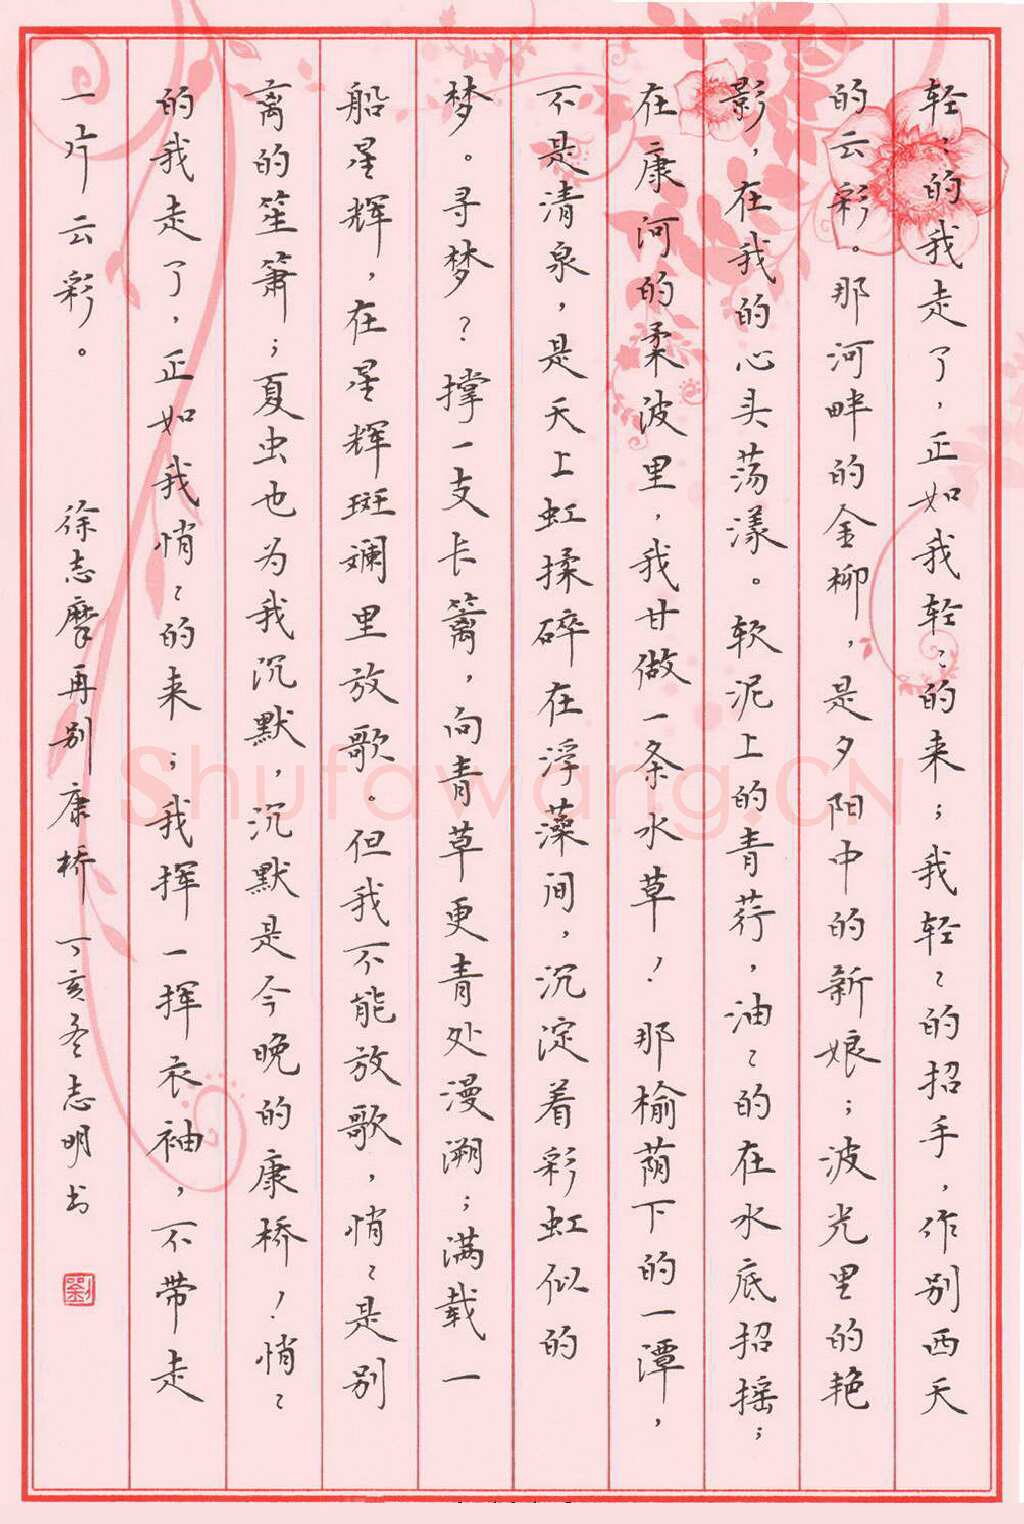 轻〻的我走了，正如我轻〻的来；我轻〻的招手，作别西天
的云彩。那河畔的金柳，是夕阳中的新娘；波光里的艳
影，在我的心头荡漾。软泥上的青荇，油〻的在水底招摇；
在康河的柔波里，我甘做一条水草！那榆荫下的一潭，
不是清泉，是天上虹揉碎在浮藻间，沉淀着彩虹似的
梦。寻梦？撑一支长篙，向青草更青处漫溯；满载一
船星辉，在星辉斑斓里放歌。但我不能放歌，悄〻是别
离的笙箫；夏虫也为我沉默，沉默是今晚的康桥！悄〻
的我走了，正如我悄〻的来；我挥一挥衣袖，不带走
一片云彩。
徐志摩再别康桥 丁亥冬志明书
劉
Shufawang.CN